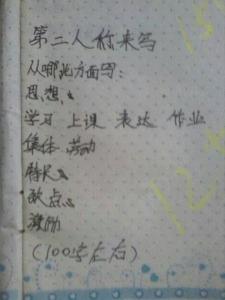 第二人称来写
从哪些方面写:
思想、
学习 上课 表达 作业
集体 劳动
特长、
缺点、
激励
(100字左右)